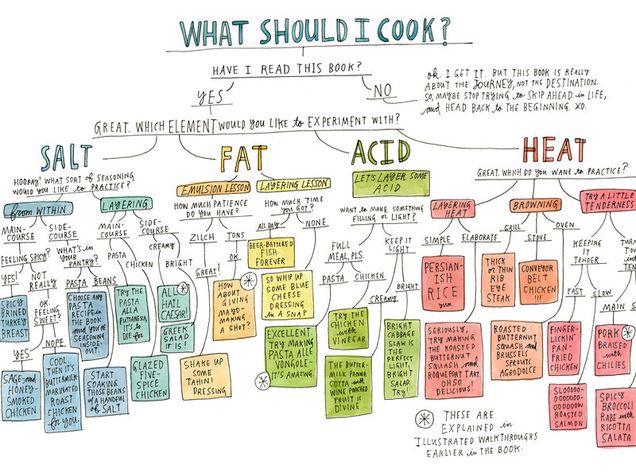 WHAT SHOULD I COOK?
HAVE I READ THIS BOOK?
YES
NO
Oh. I GET IT. BUT THIS BOOK IS REALLY
ABOUT the JOURNEY, NOT the DESTINATION.
SO, MAYBE STOP TRYING to SKIP AHEAD in LIFE,
and HEAD BACK to THE BEGINNING. XO.
GREAT. WHICH ELEMENT WOULD YOU LIKE to EXPERIMENT WITH?
SALT
HOORAY! WHAT SORT of SEASONING
WOULD YOU LIKE to PRACTICE?
from WITHIN
LAYERING
MAIN-
COURSE
SIDE-
COURSE
MAIN-
COURSE
SIDE-
COURSE
FEELING SPICY?
YES!
NOT
REALLY
SPICY
BRINED
TURKEY
BREAST
OK
FEELING
SWEET?
YES
NOPE
SAGE and
HONEY-
SMOKED
CHICKEN
COOL. THEN
IT'S BUTTERMILK-
MARINATED
ROAST
CHICKEN
for YOU.
WHAT'S in
YOUR
PANTRY?
PASTA
BEANS
CHOOSE ANY
PASTA
RECIPE in the
BOOK and
YOU'RE
SEASONING
OUT
START
SOAKING
THOSE BEANS
& A HANDFUL
of SALT
PASTA
CHICKEN
TRY THE
PASTA
ALLA
PUTTANESCA
IT'S to
DIE for
GLAZED
FIVE-
SPICE
CHICKEN
CREAMY
BRIGHT
ALL
HAIL
CAESAR!
GREEK
SALAD
IT IS!
FAT
EMULSION LESSON
LAYERING LESSON
HOW MUCH PATIENCE
DO YOU HAVE?
ZILCH
TONS
GREAT!
OK
HOW
ABOUT
GIVING
MAYO
MAKING
A SHOT?
SHAKE UP
SOME
TAHINI
DRESSING
HOW MUCH TIME
YOU GOT?
ALL DAY
NONE
BEER-BATTERED
FISH
FOREVER
SO WHIP UP
SOME BLUE
CHEESE
DRESSING
IN A SNAP
ACID
LET'S LAYER SOME
ACID
WANT to MAKE SOMETHING
FILLING OR LIGHT?
FULL
MEAL, PLS.
KEEP IT
LIGHT
PASTA
CHICKEN
CREAMY
BRIGHT
EXCELLENT.
TRY MAKING
PASTA ALLE
VONGOLE-
IT'S AMAZING.
TRY the
CHICKEN
with
VINEGAR
THE BUTTER-
MILK PANNA
COTTA with
WINE POACHED
FRUIT is
DIVINE
BRIGHT
CABBAGE
SLAW IS
the PERFECT
LIGHT,
BRIGHT
SALAD.
TRY!
HEAT
GREAT. WHICH DO YOU WANT to PRACTICE?
LAYERING
HEAT
BROWNING
TRY A LITTLE
TENDERNESS
SIMPLE
ELABORATE
PERSIAN-
ISH
RICE
yum
SERIOUSLY,
TRY MAKING
the ROASTED
BUTTERNUT
SQUASH and
ROQUEFORT TART.
OH SO
DELICIOUS!
GRILL
STOVE
OVEN
THICK
or THIN
RIB
EYE
STEAK
CONVEYOR
BELT
CHICKEN
!!!
ROASTED
BUTTERNUT
SQUASH and
BRUSSELS
SPROUTS
AGRODOLCE
KEEPING
IT
TENDER
FAST
SLOW
FINGER-
LICKIN'
PAN-
FRIED
CHICKEN
SLOOOOO-
ROASTED
SALMON
PORK
BRAISED
with
CHILIES
SPICY
BROCCOLI
RABE with
RICOTTA
SALATA
THESE ARE
EXPLAINED in
ILLUSTRATED WALKTHROUGHS
EARLIER in THE BOOK.